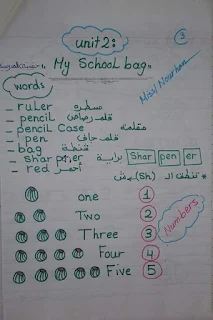 unit2:
3
"My School bag"
Miss/ Nourhan
words
_ ruler مسطرة
_ pencil قلم رصاص
_ pencil case مقلمة
_ pen قلم جاف
_ bag شنطة
_ sharpener براية Shar pen er
_ red أحمر
* تنطق ال (sh) ش
one 1
Two 2
Three 3
Four 4
Five 5
Numbers